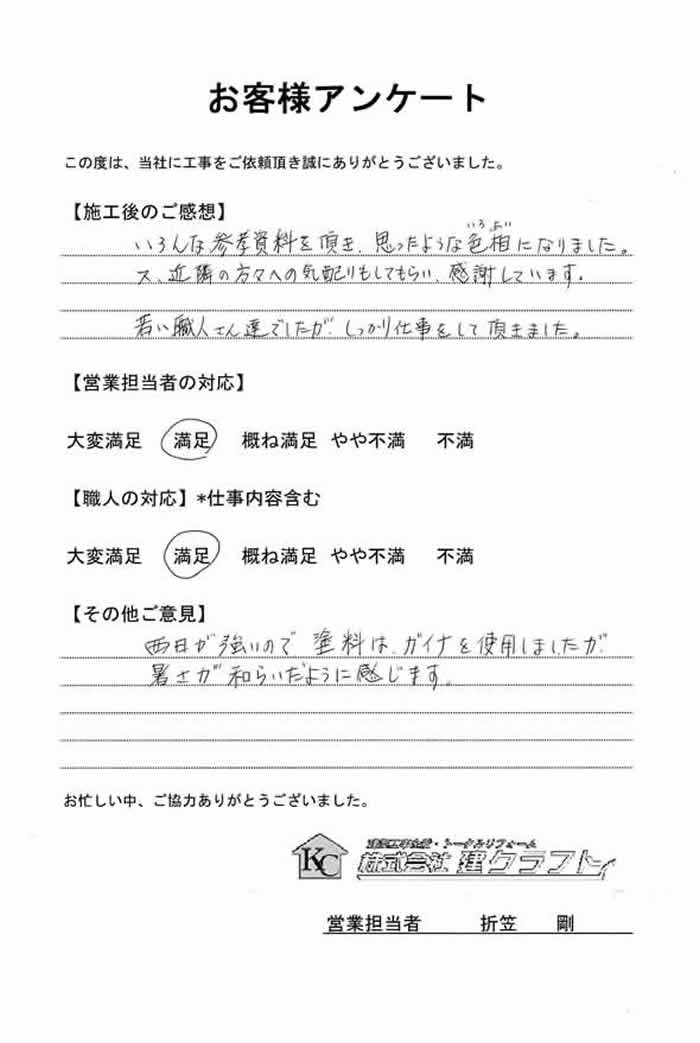 お客様アンケート
この度は、当社に工事をご依頼頂き誠にありがとうございました。
【施工後のご感想】
いろんな参考資料を頂き、思ったような色相になりました。
いろあい
又、近隣の方々への気配りもしてもらい、感謝しています。
若い職人さん達でしたが、しっかり仕事をして頂きました。
【営業担当者の対応】
大変満足 満足 概ね満足 やや不満 不満
【職人の対応】*仕事内容含む
大変満足 満足 概ね満足 やや不満 不満
【その他ご意見】
西日が強いので、塗料は、ガイナを使用しましたが、
暑さが和らいだように感じます。
お忙しい中、ご協力ありがとうございました。
・トータルリフォーム
KC 株式会社 建クラフト
営業担当者 折笠 剛